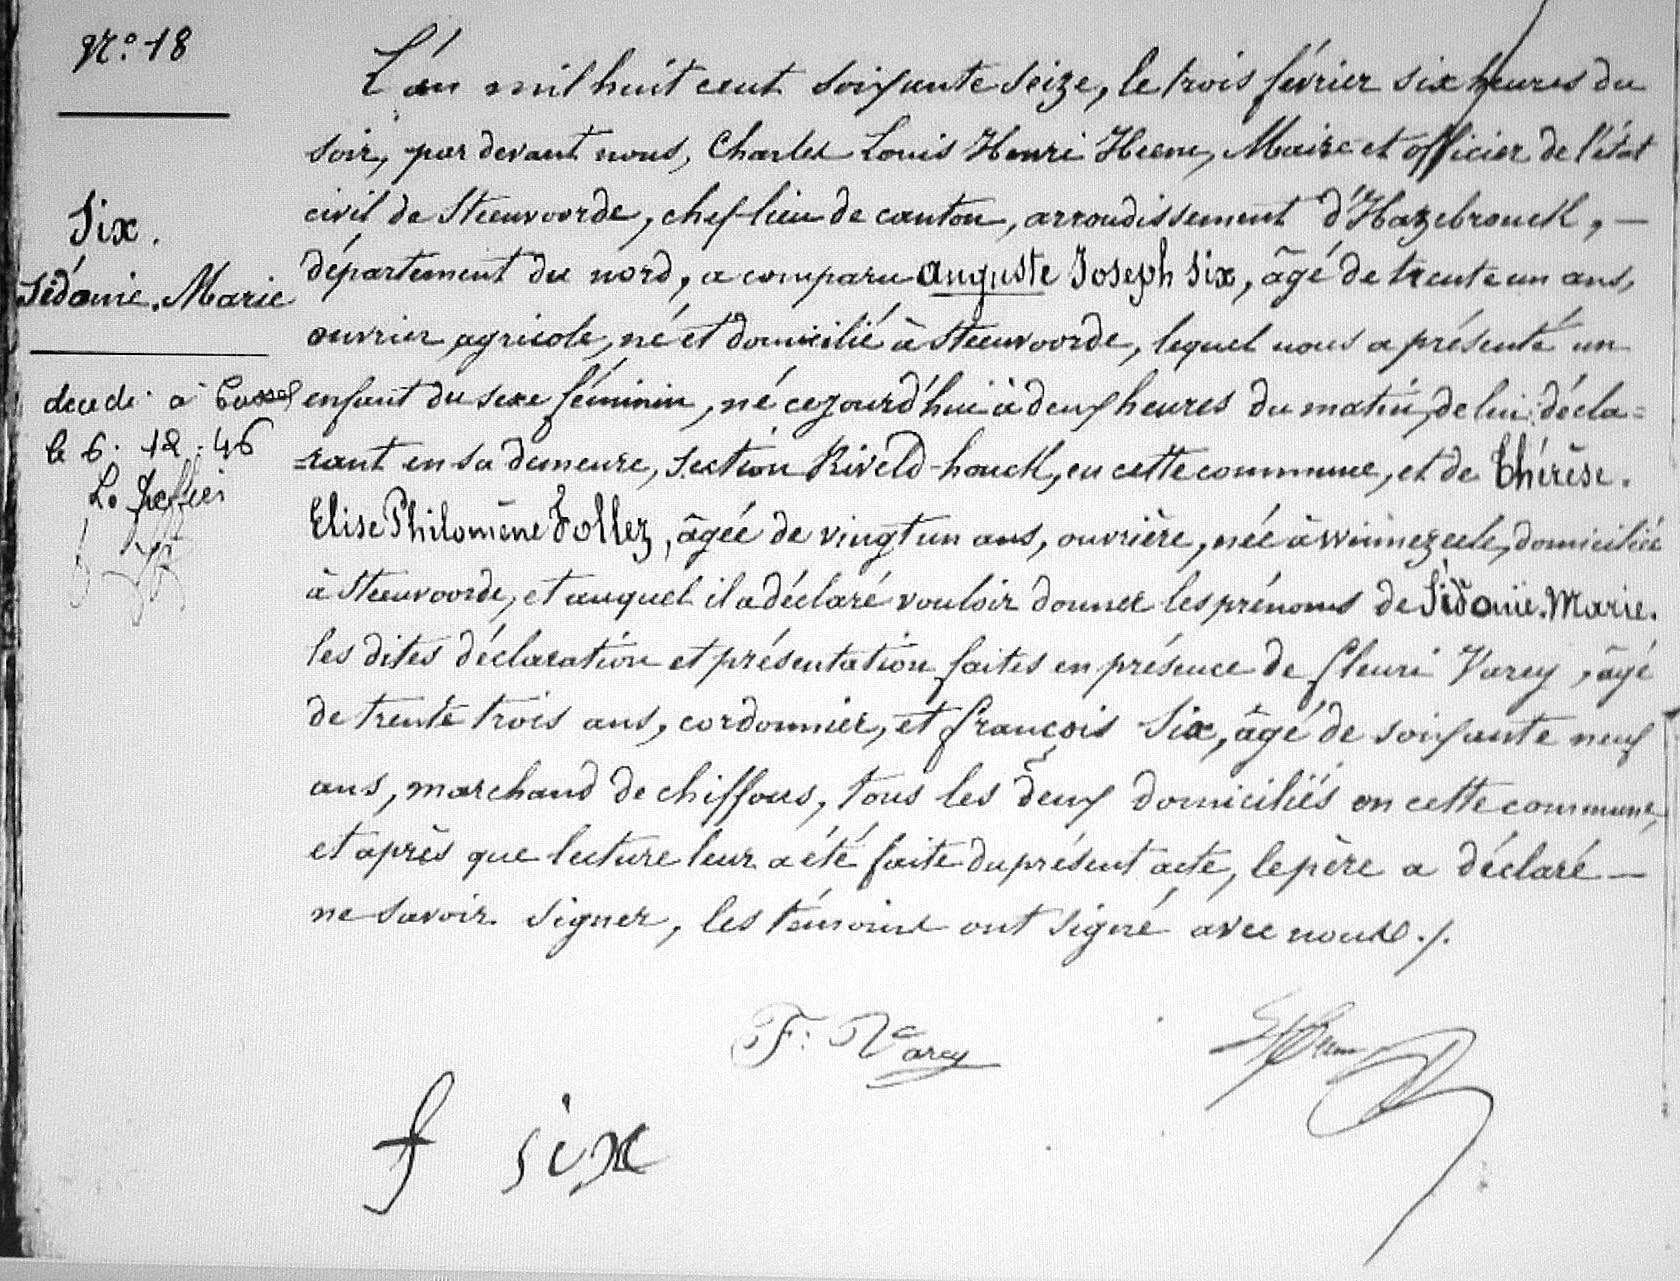 N.o 18
Six.
Sidonie. Marie
decede à Cassel
le 6. 12. 46
Le Greffier
L'an mil huit cent soixante seize, le trois février six heures du
soir, par devant nous, Charles Louis Henri Heene, Maire et officier de l'état
civil de Steenvoorde, chef lieu de canton, arrondissement d'Hazebrouck, —
département du nord, a comparu auguste Joseph Six, âgé de trente un ans,
ouvrier agricole, né et domicilié à Steenvoorde, lequel nous a présenté un
enfant du sexe féminin, né cejourd'hui à deux heures du matin, de lui décla=
=rant en sa demeure, section Riveld-houck, en cette commune, et de Thérèse.
Elise Philomène Follez, âgée de vingt un ans, ouvrière, née à Winnezeele, domiciliée
à Steenvoorde, et auquel il a déclaré vouloir donner les prénoms de Sidonie. Marie.
les dites déclaration et présentation faites en présence de fleuri Varey, âgé
de trente trois ans, cordonnier, et françois Six, âgé de soixante neuf
ans, marchand de chiffons, tous les deux domiciliés en cette commune,
et après que lecture leur a été faite du présent acte, le père a déclaré —
ne savoir signer, les témoins ont signé avec nous./.
F: Varey
f six